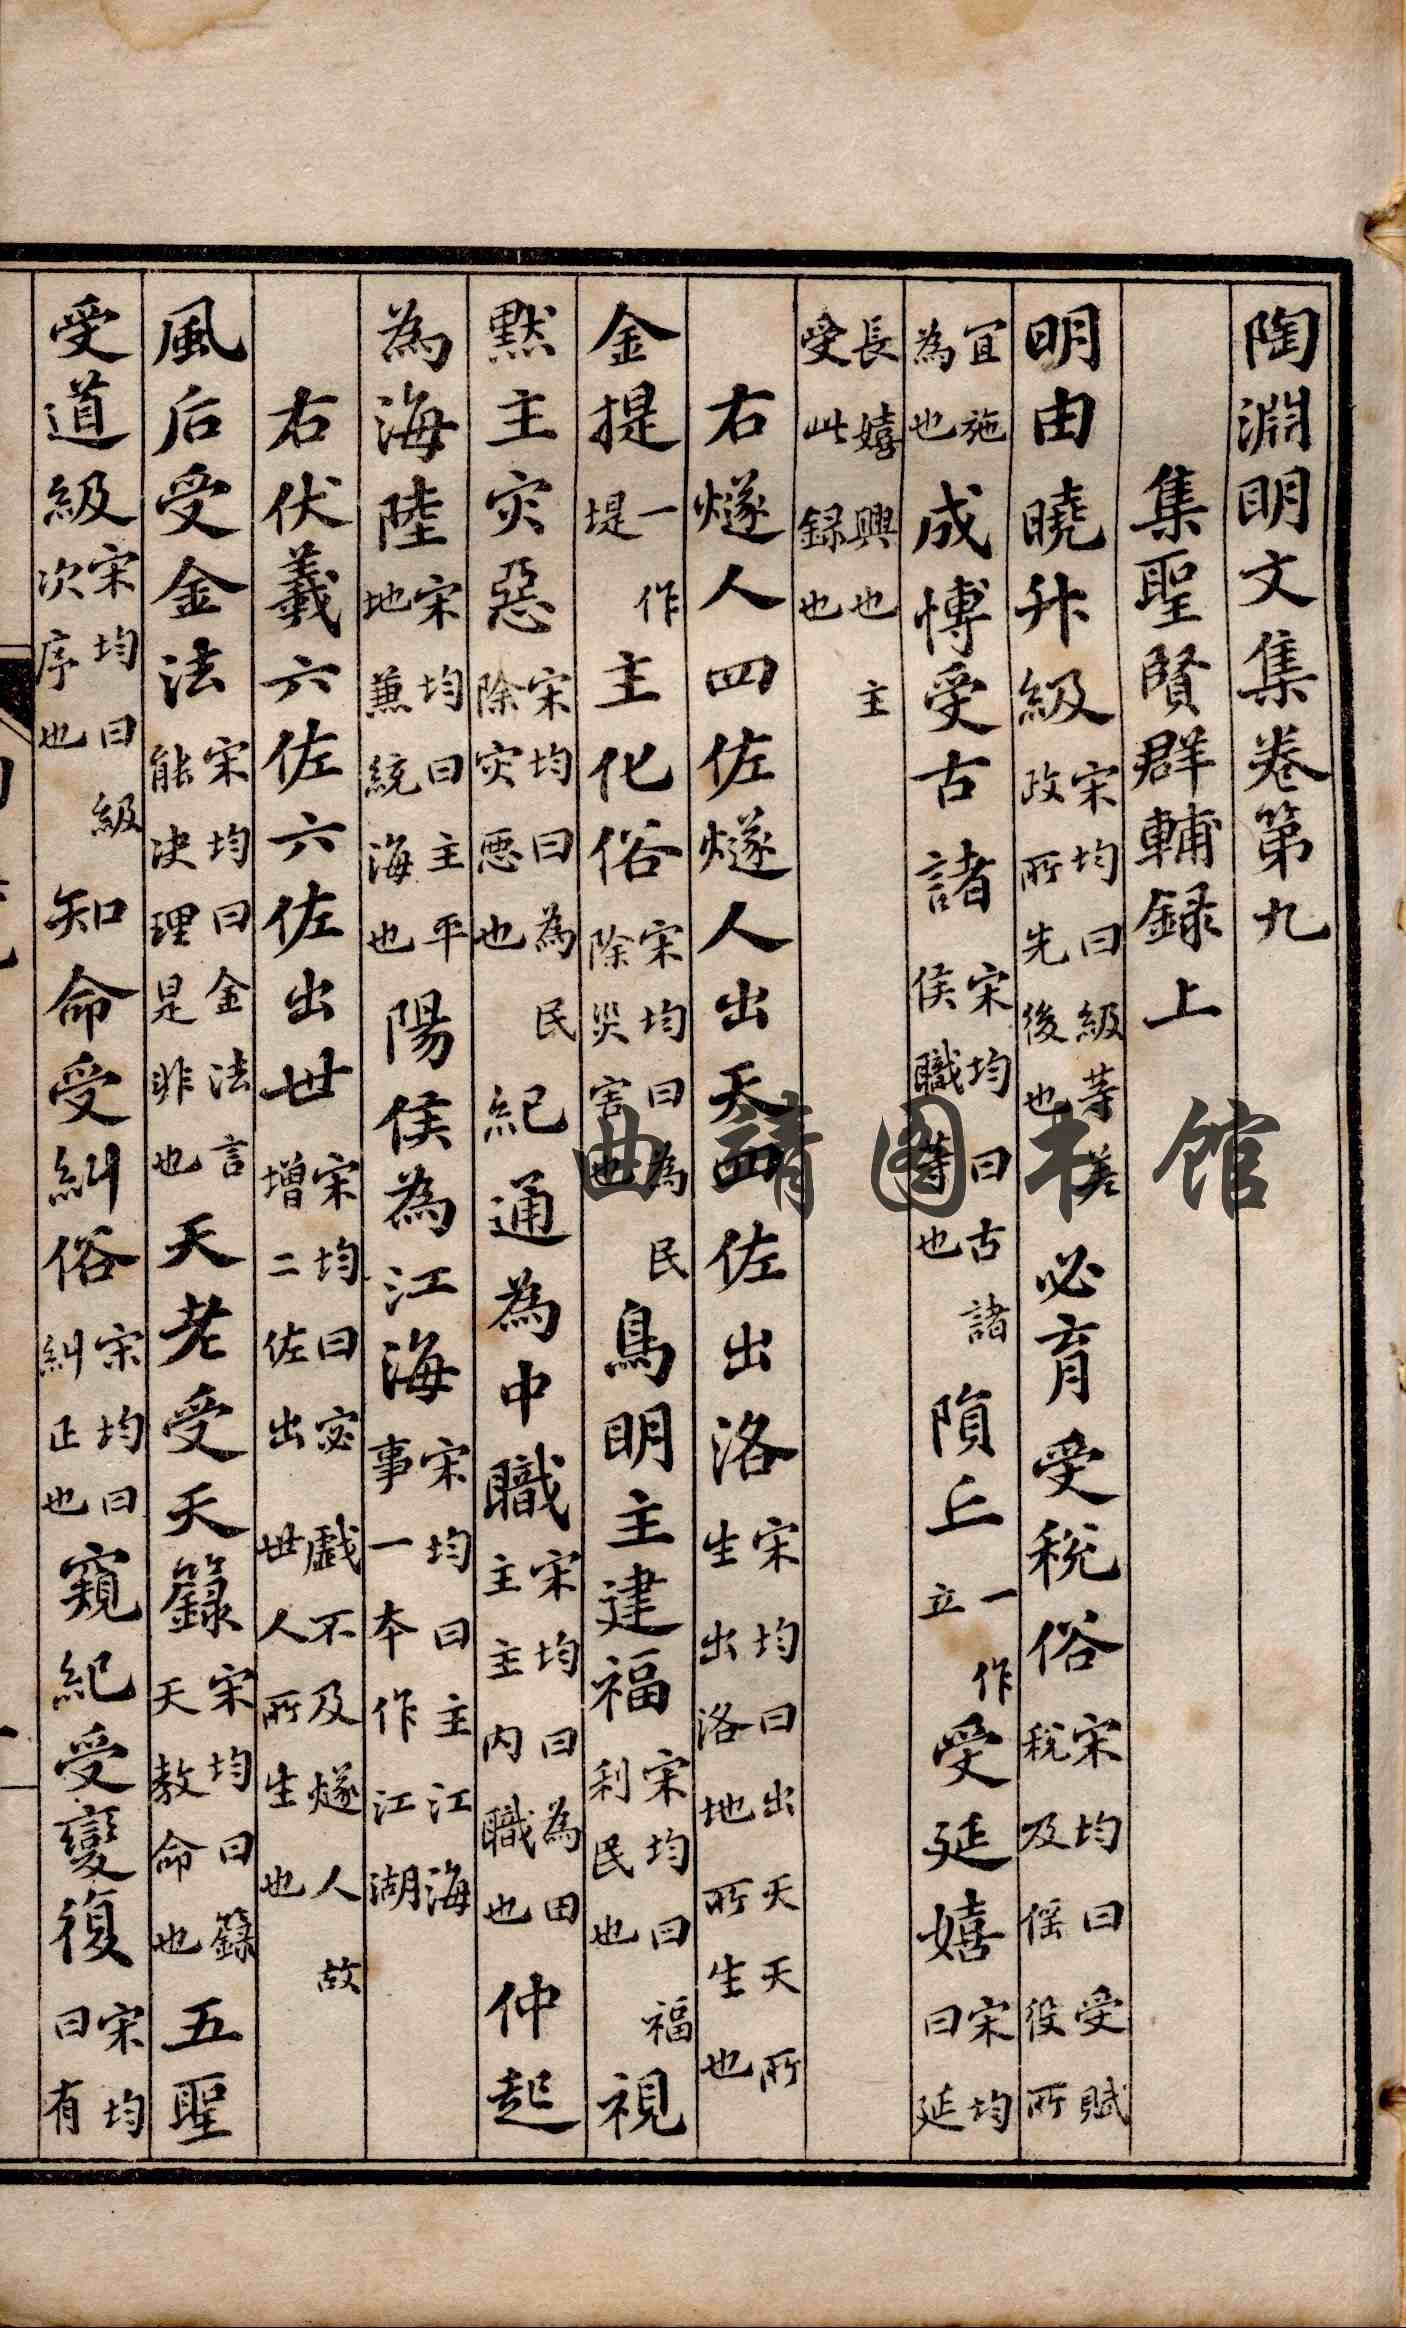 陶淵明文集卷第九
集聖賢群輔録上
明由曉升級宋均曰級等差政所先後也必育受稅俗宋均曰受賦稅及徭役所
宜施為也成博受古諸宋均曰古諸侯職等也隕丘一作立受延嬉宋均曰延
長嬉興也主受此録也
右燧人四佐燧人出天四佐出洛宋均曰出天天所生出洛地所生也
金提一作堤主化俗宋均曰為民除災害也鳥明主建福宋均曰福利民也視
黙主灾惡宋均曰為民除灾悪也紀通為中職宋均曰為田主主内職也仲起
為海陸宋均曰主平地兼統海也陽侯為江海宋均曰主江海事一本作江湖
右伏羲六佐六佐出世宋均曰宓戲不及燧人故增二佐出世人所生也
風后受金法宋均曰金法言能决理是非也天老受天籙宋均曰籙天教命也五聖
受道級宋均曰級次序也知命受糾俗宋均曰糾正也窺紀受變復宋均曰有
曲靖图书馆